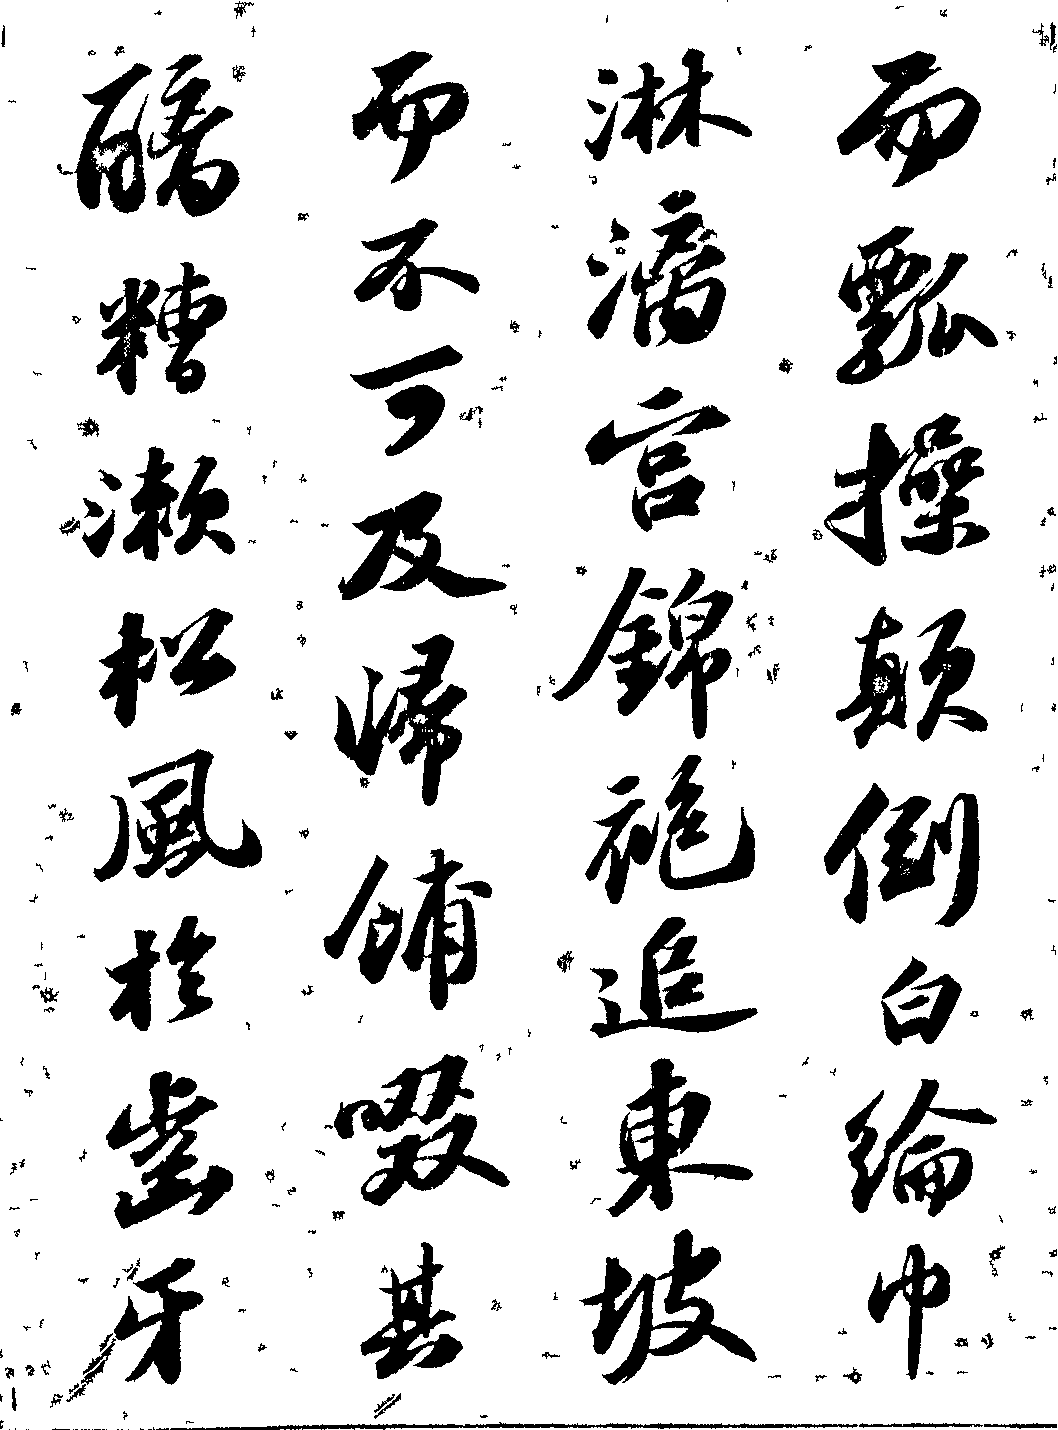 而瓢操顛倒白綸巾
淋漓宮錦袍追東坡
而不可及歸餔啜其
醨糟漱松風於齒牙